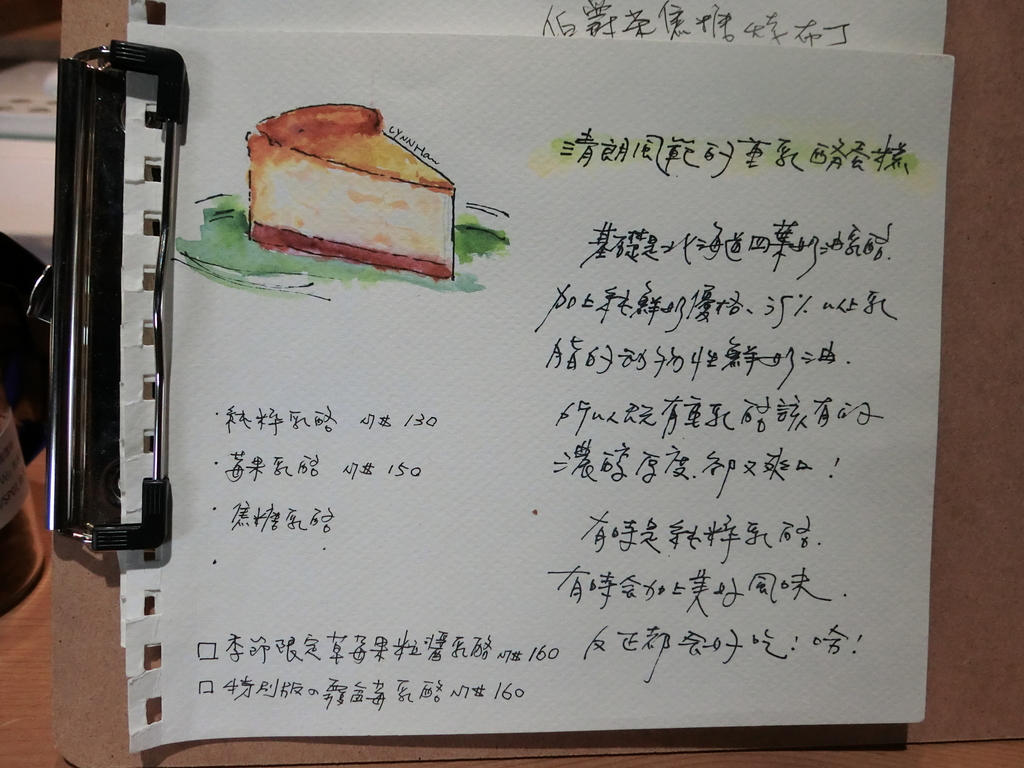 伯爵茶焦糖烤布丁
LYNN Han
清朗風範的重乳酪蛋糕
基礎是北海道四葉奶油乳酪.
加上純鮮奶優格、35%以上乳
脂的動物性鮮奶油.
所以既有重乳酪該有的
濃醇厚度.卻又爽口!
有時是純粹乳酪.
有時會加上美好風味.
反正都會好吃!啥!
·純粹乳酪 NT$ 130
·莓果乳酪 NT$ 150
·焦糖乳酪
·
□季節限定草莓果粒醬乳酪 NT$ 160
□特別版の藍莓乳酪 NT$ 160